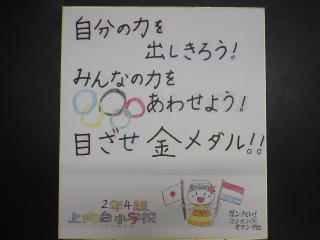 自分の力を
出しきろう!
みんなの力を
あわせよう!
目ざせ 金メダル!!
2年4組
上向台小学校
ガンバレ!
ニイボン